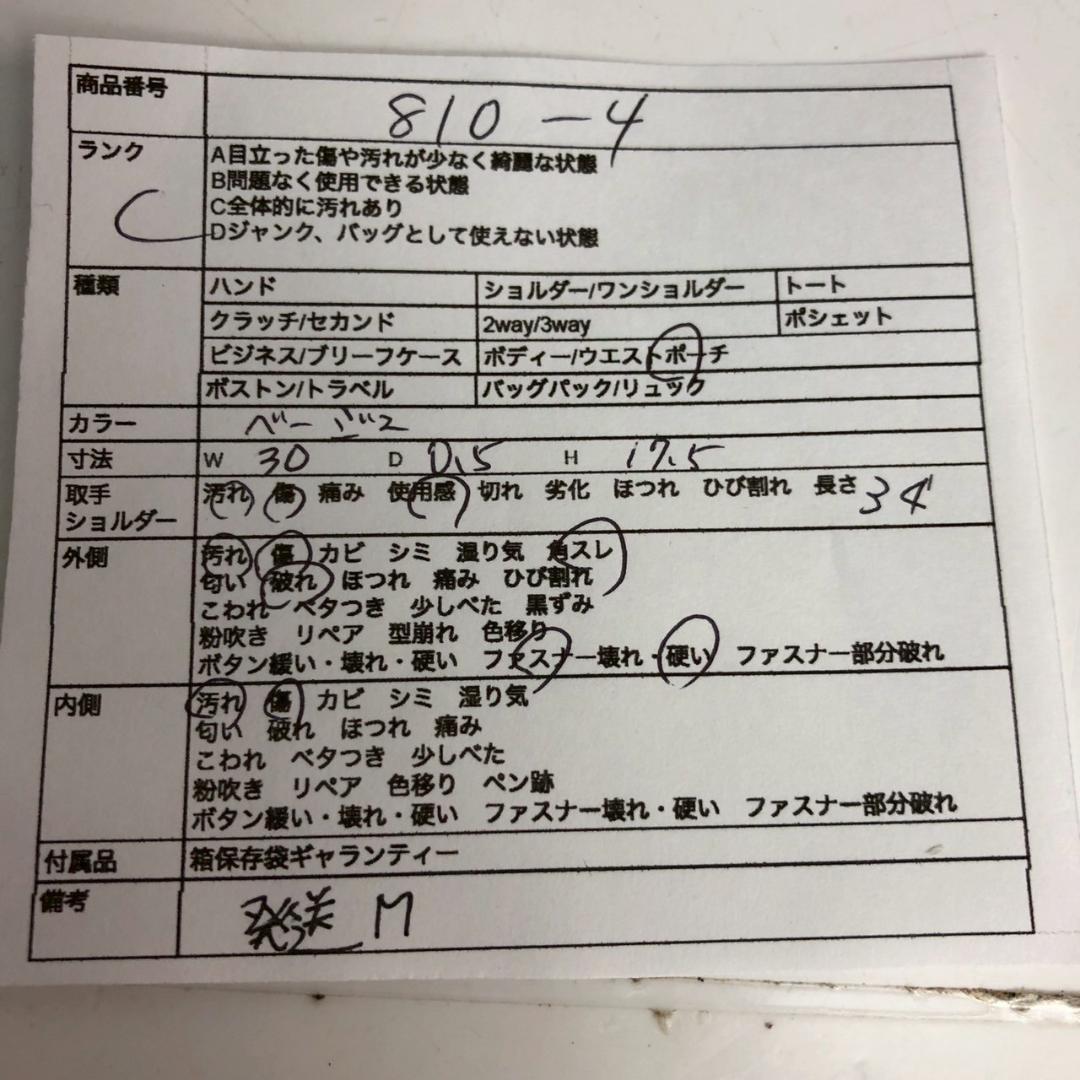 商品番号 810-4
ランク C
A目立った傷や汚れが少なく綺麗な状態
B問題なく使用できる状態
C全体的に汚れあり
Dジャンク、バッグとして使えない状態
種類 ハンド ショルダー/ワンショルダー トート
クラッチ/セカンド 2way/3way ポシェット
ビジネス/ブリーフケース ボディー/ウエストポーチ
ボストン/トラベル バッグパック/リュック
カラー ベージュ
寸法 W 30 D 0.5 H 17.5
取手 汚れ 傷 痛み 使用感 切れ 劣化 ほつれ ひび割れ 長さ 34
ショルダー
外側 汚れ 傷 カビ シミ 湿り気 角スレ
匂い 破れ ほつれ 痛み ひび割れ
こわれ ベタつき 少しべた 黒ずみ
粉吹き リペア 型崩れ 色移り
ボタン緩い・壊れ・硬い ファスナー壊れ・硬い ファスナー部分破れ
内側 汚れ 傷 カビ シミ 湿り気
匂い 破れ ほつれ 痛み
こわれ ベタつき 少しべた
粉吹き リペア 色移り ペン跡
ボタン緩い・壊れ・硬い ファスナー壊れ・硬い ファスナー部分破れ
付属品 箱保存袋ギャランティー
備考 発送 M